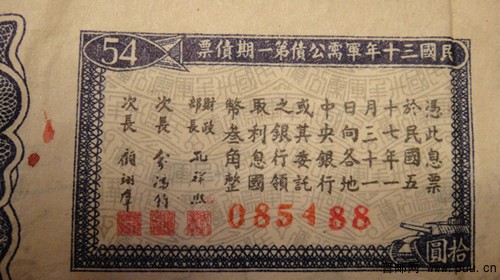 54
民國三十年軍需公債第一期債票
憑此息票
於民國五
十七年一
月三十一
日向各地
中央銀行
或其委託
之銀行領
取利息國
幣叁角整
財政部長 孔祥熙
次長 俞鴻鈞
次長 顧翊羣
085488
拾圓